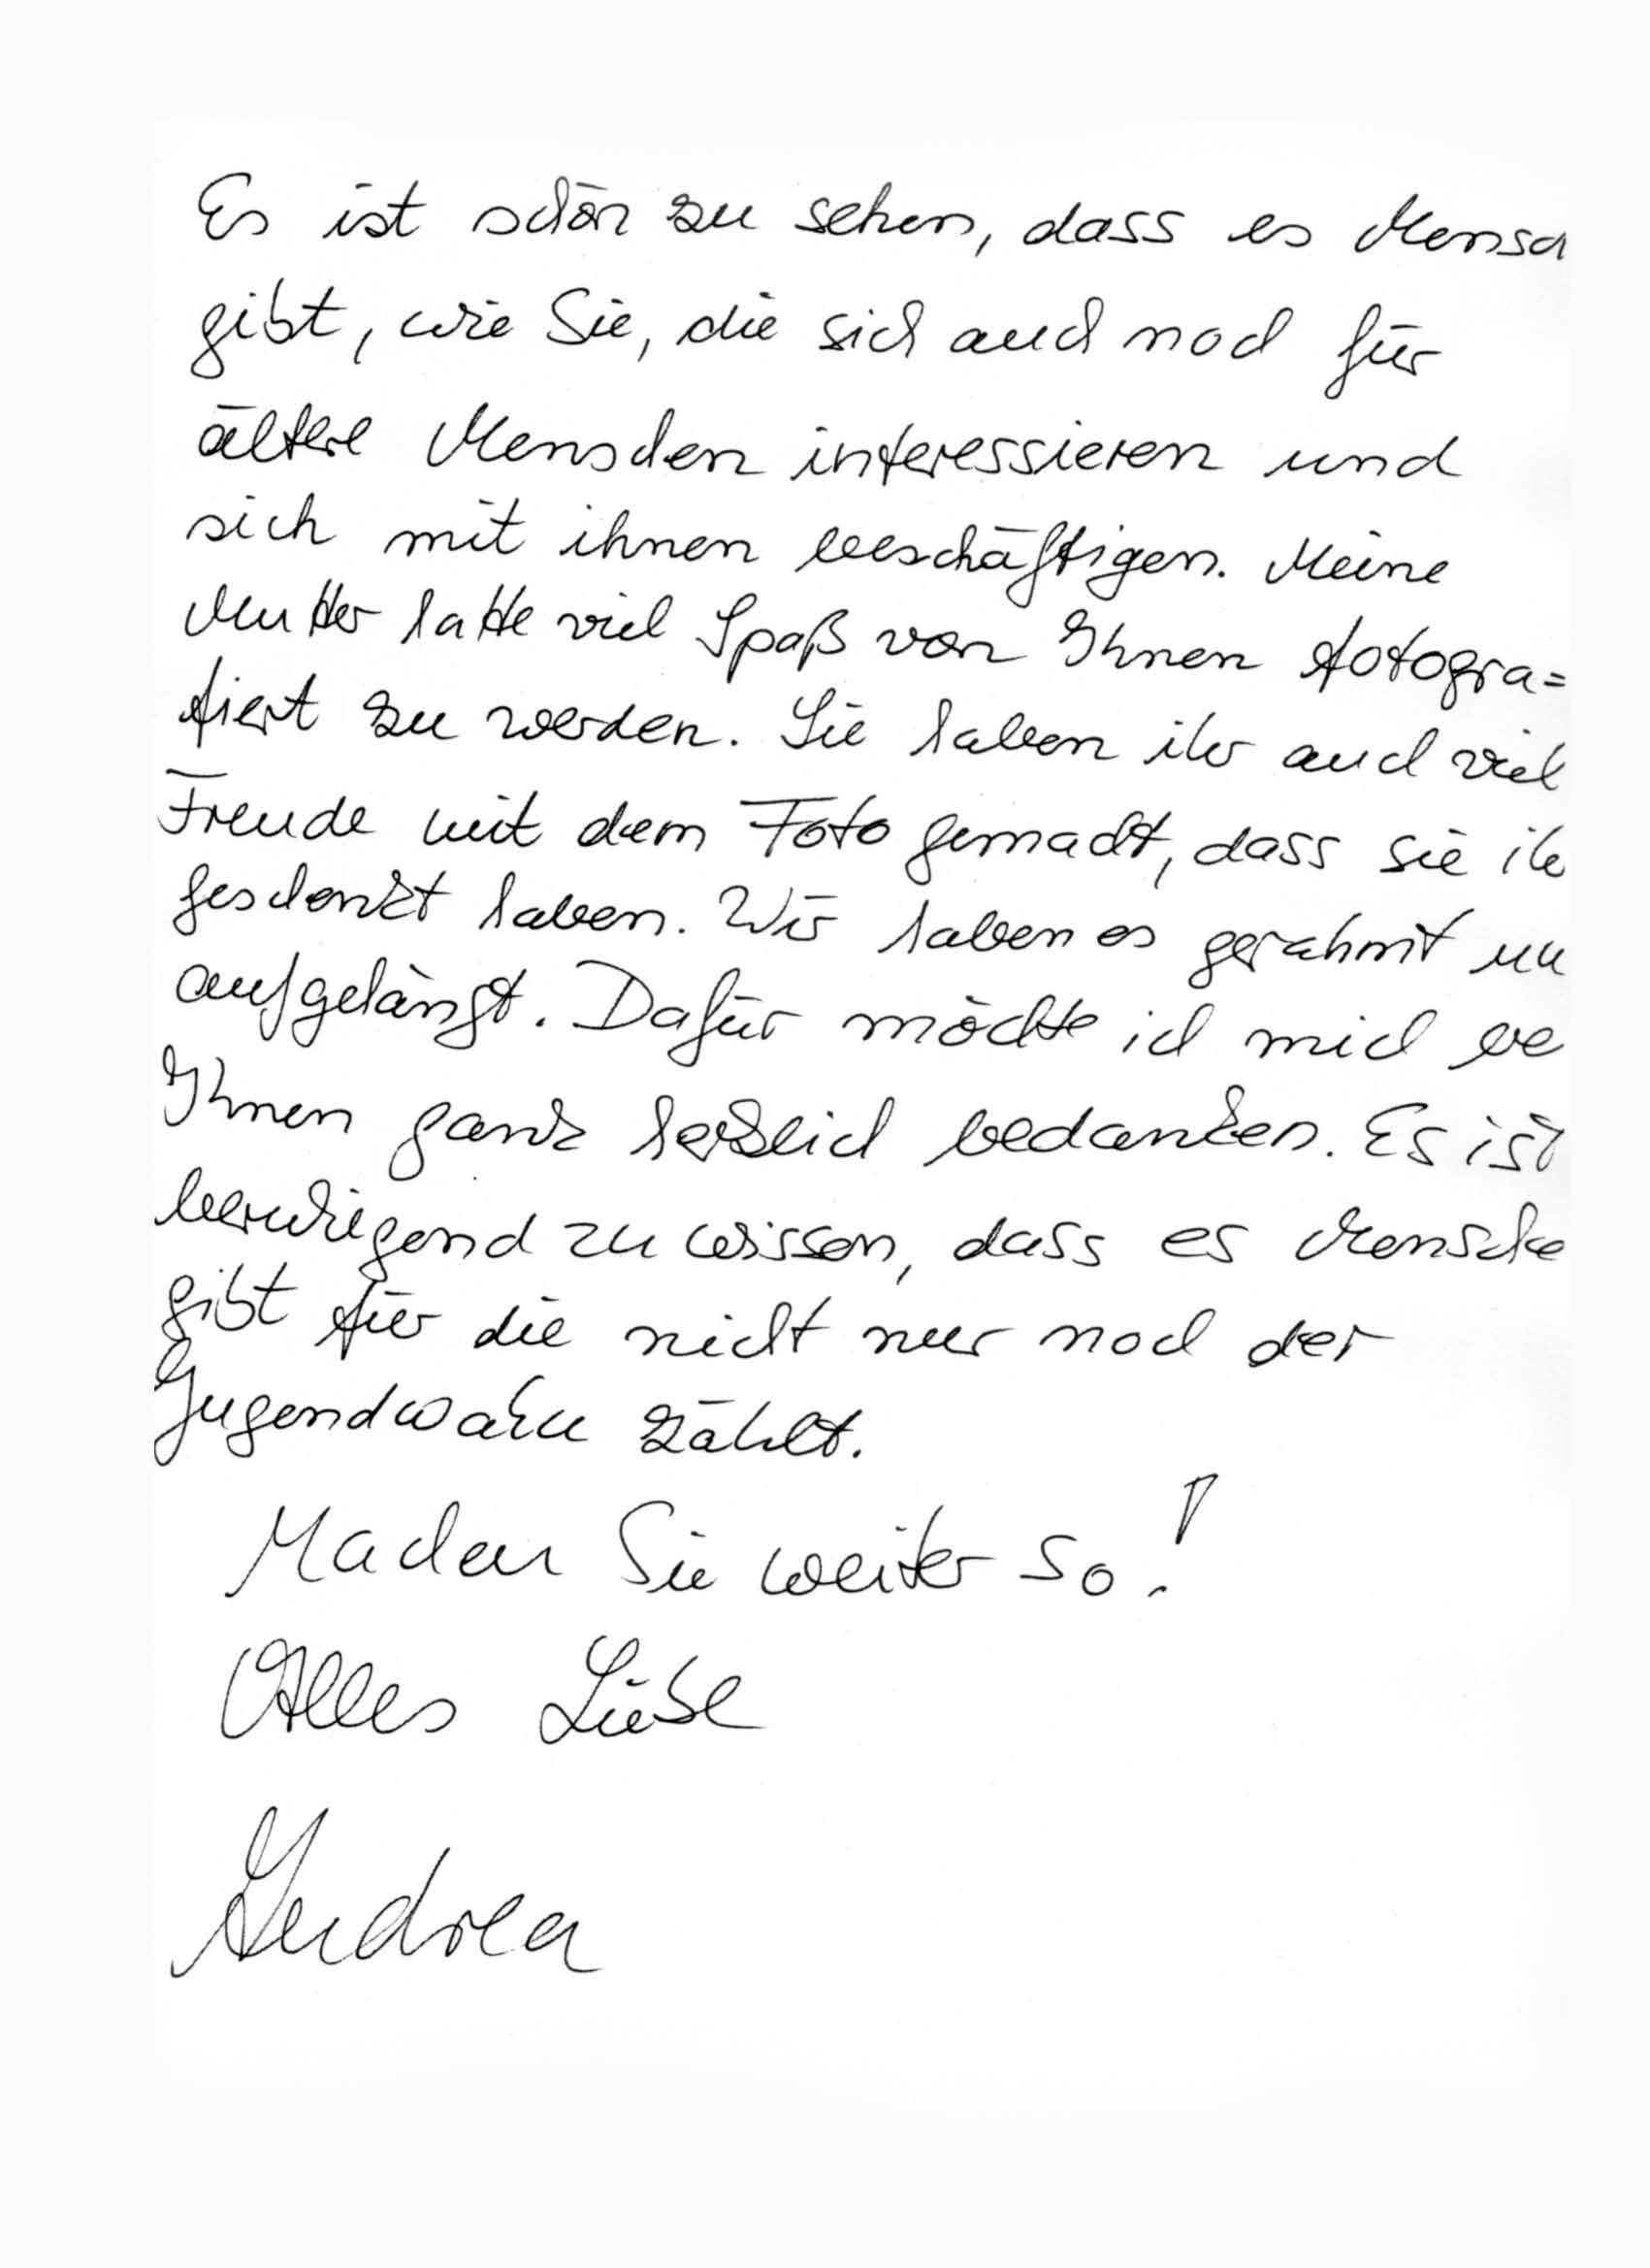 Es ist schön zu sehen, dass es Mensch
gibt, wie Sie, die sich auch noch für
ältere Menschen interessieren und
sich mit ihnen beschäftigen. Meine
Mutter hatte viel Spaß von Ihnen fotogra=
fiert zu werden. Sie haben ihr auch viel
Freude mit dem Foto gemacht, dass sie ih
geschenkt haben. Wir haben es gerahmt un
aufgehängt. Dafür möchte ich mich be
Ihnen ganz herzlich bedanken. Es ist
beruhigend zu wissen, dass es Mensche
gibt für die nicht nur noch der
Jugendwahn zählt.
Machen Sie weiter so!
Alles Liebe
Andrea